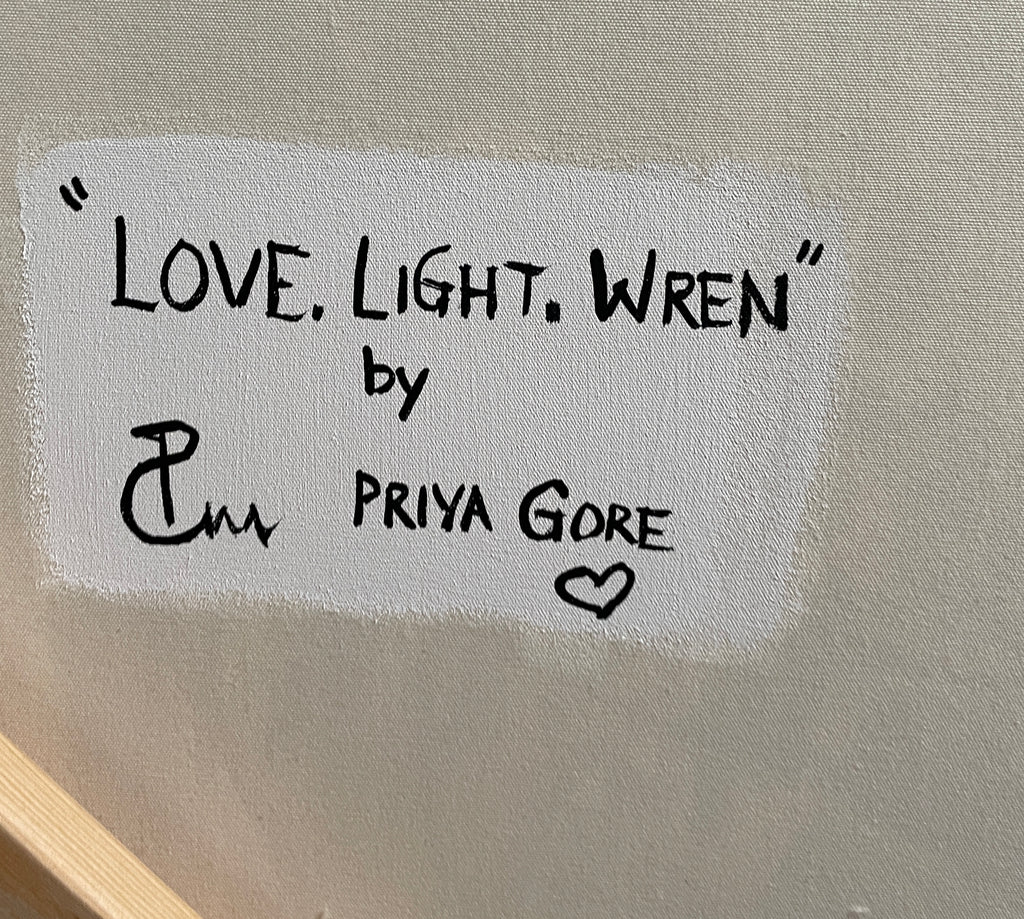 "LOVE. LIGHT. WREN"
by
PRIYA GORE